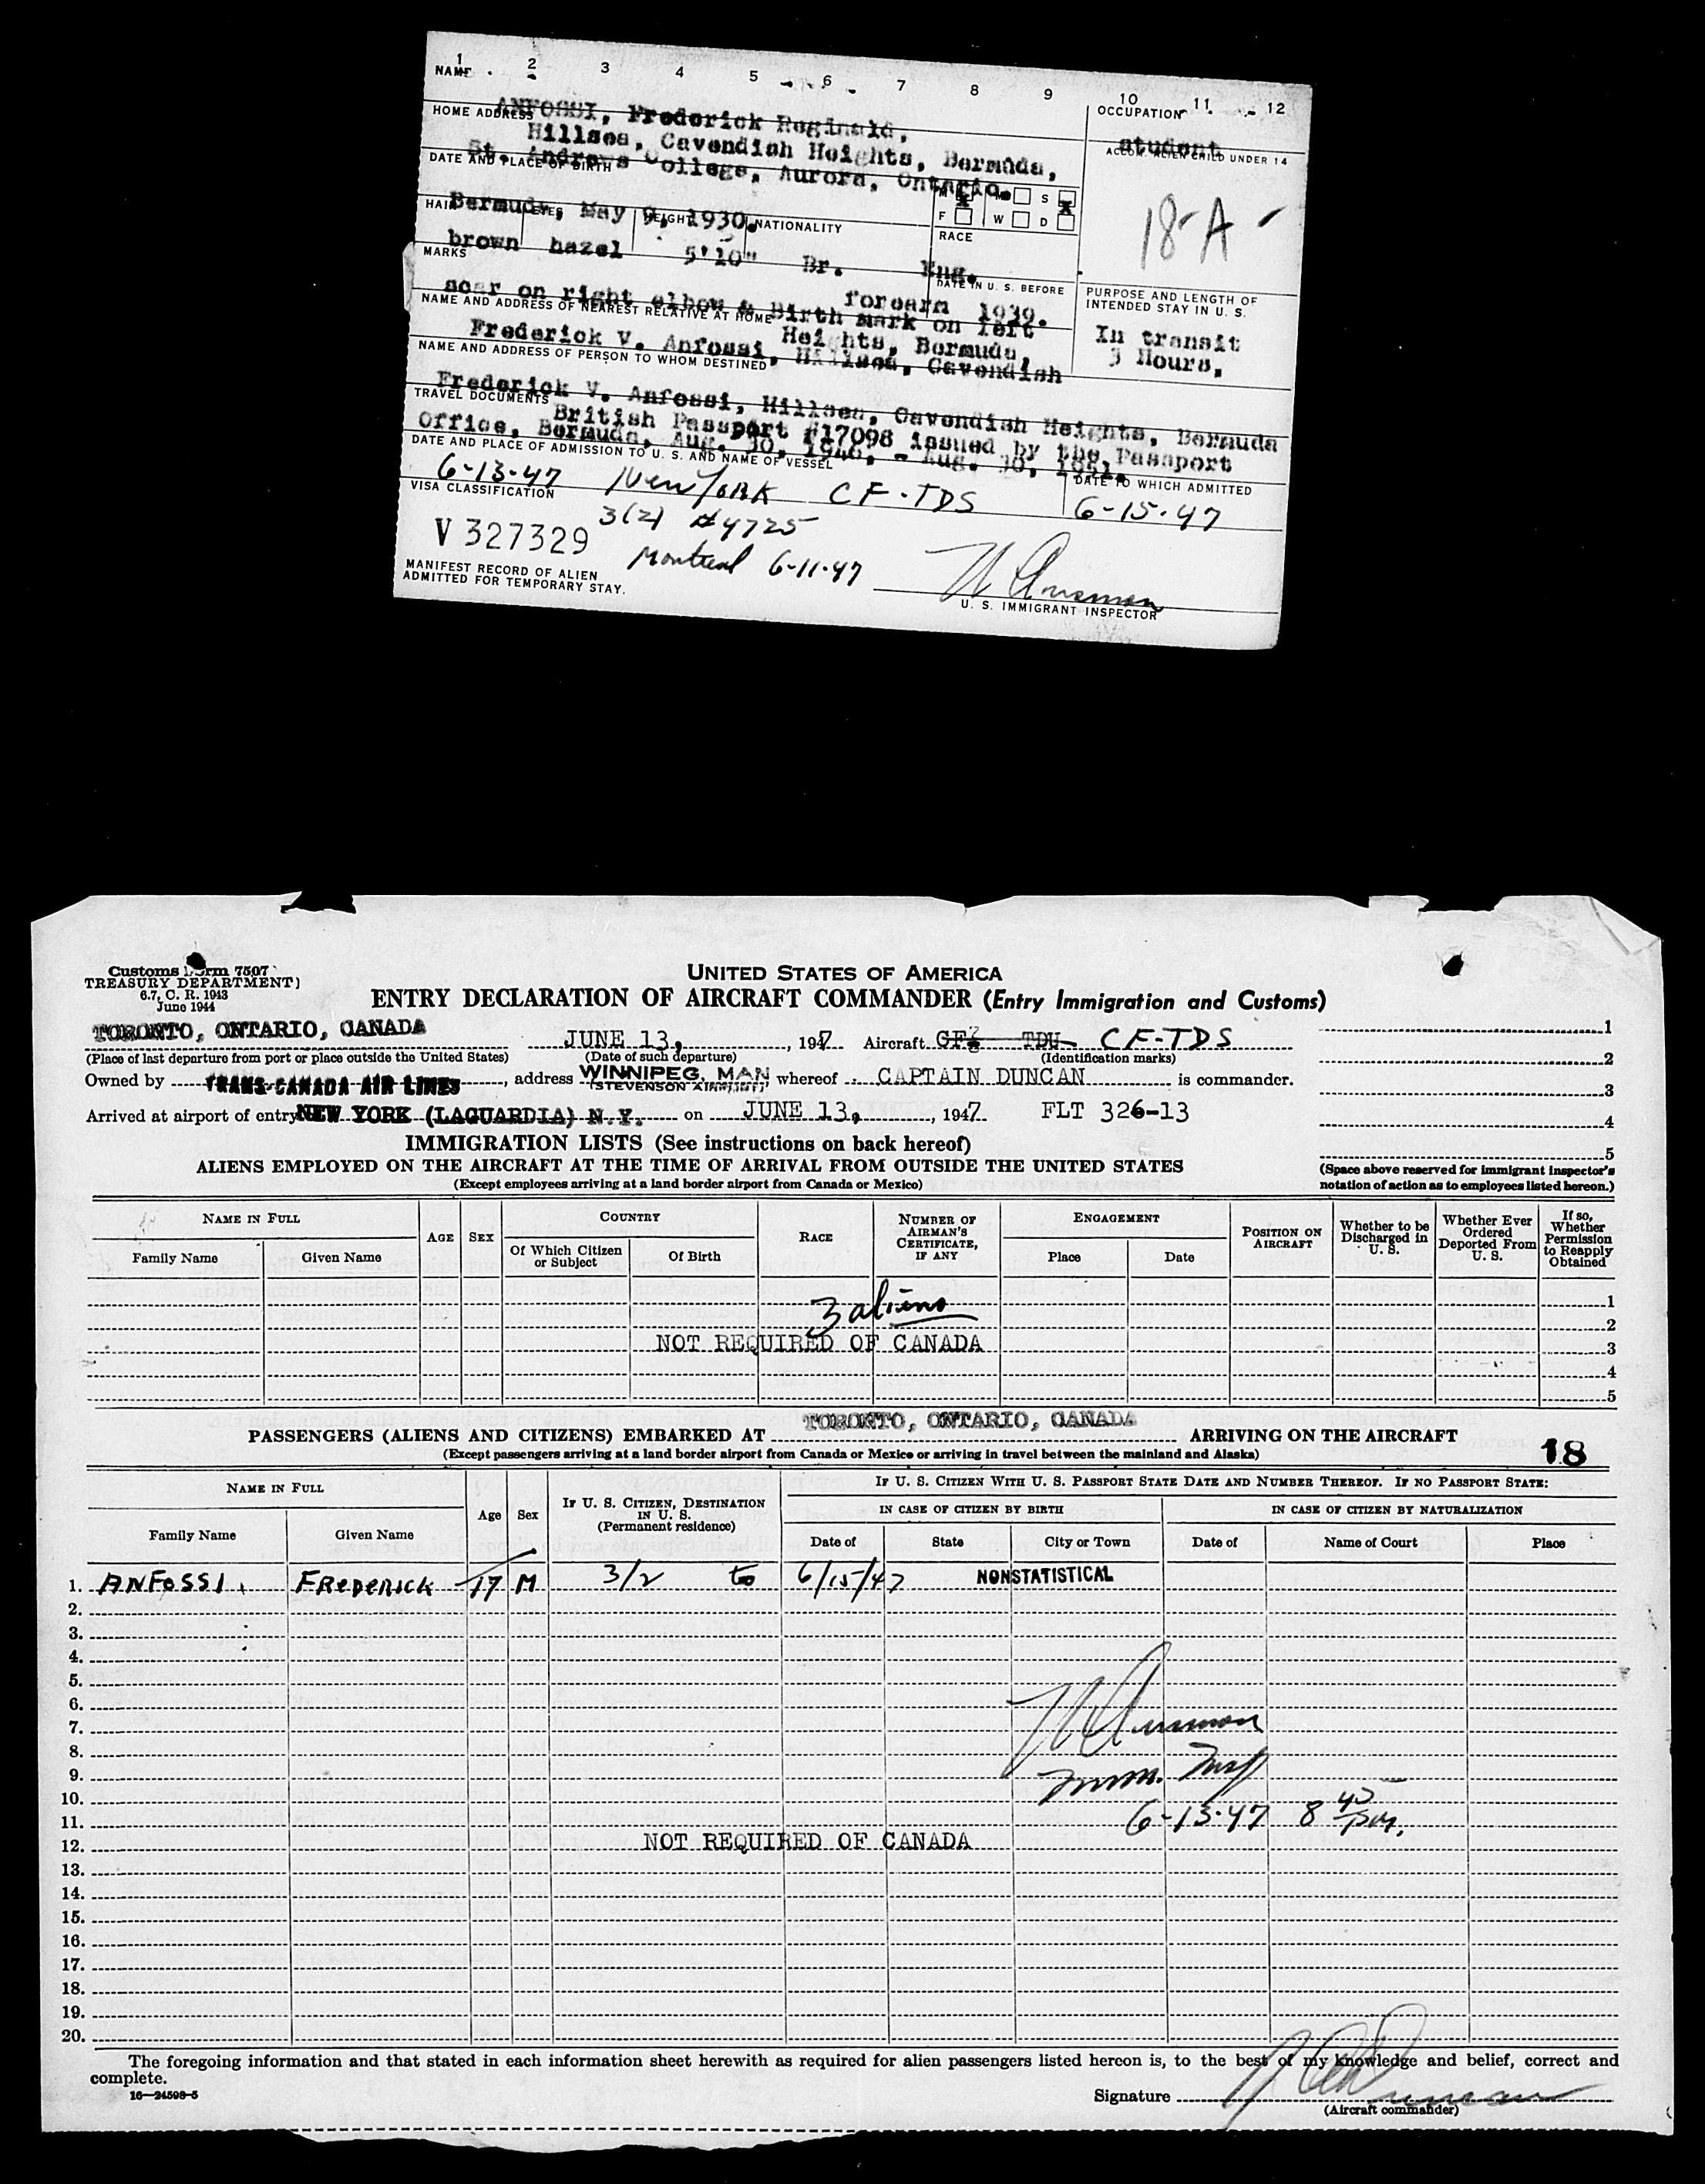 1 2 3 4 5 6 7 8 9 10 11 12
NAME
ANFOSSI, Frederick Reginald,
OCCUPATION
student
HOME ADDRESS
Hillsea, Cavendish Heights, Bermuda,
St. Andrews College, Aurora, Ontario.
ACCOM. ALIEN CHILD UNDER 14
18-A
DATE AND PLACE OF BIRTH
Bermuda, May 9, 1930.
M X M S X
F W D
HAIR EYES HEIGHT NATIONALITY RACE
brown hazel 5'10" Br. Eng.
MARKS
DATE IN U. S. BEFORE
forearm 1939.
scar on right elbow & Birth mark on left
PURPOSE AND LENGTH OF
INTENDED STAY IN U. S.
In transit
3 Hours.
NAME AND ADDRESS OF NEAREST RELATIVE AT HOME
Heights, Bermuda,
Frederick V. Anfossi, Hillsea, Cavendish
NAME AND ADDRESS OF PERSON TO WHOM DESTINED
Frederick V. Anfossi, Hillsea, Cavendish Heights, Bermuda
TRAVEL DOCUMENTS
British Passport #17098 issued by the Passport
Office, Bermuda, Aug. 30, 1946, - Aug. 30, 1951.
DATE AND PLACE OF ADMISSION TO U. S. AND NAME OF VESSEL
DATE TO WHICH ADMITTED
6-13-47 New YORK CF-TDS 6-15-47
VISA CLASSIFICATION
3(2) #4725
V 327329
Montreal 6-11-47
MANIFEST RECORD OF ALIEN
ADMITTED FOR TEMPORARY STAY.
U. S. IMMIGRANT INSPECTOR
Customs Form 7507
TREASURY DEPARTMENT)
6.7, C. R. 1943
June 1944
UNITED STATES OF AMERICA
ENTRY DECLARATION OF AIRCRAFT COMMANDER (Entry Immigration and Customs)
TORONTO, ONTARIO, CANADA JUNE 13, , 1947 Aircraft CF-TDS
(Place of last departure from port or place outside the United States) (Date of such departure) (Identification marks)
Owned by TRANS-CANADA AIR LINES , address WINNIPEG, MAN (STEVENSON AIRPORT) whereof CAPTAIN DUNCAN is commander.
Arrived at airport of entry NEW YORK (LAGUARDIA) N.Y. on JUNE 13, , 1947 FLT 326-13
1
2
3
4
5
(Space above reserved for immigrant inspector's
notation of action as to employees listed hereon.)
IMMIGRATION LISTS (See instructions on back hereof)
ALIENS EMPLOYED ON THE AIRCRAFT AT THE TIME OF ARRIVAL FROM OUTSIDE THE UNITED STATES
(Except employees arriving at a land border airport from Canada or Mexico)
NAME IN FULL
Family Name Given Name
AGE SEX
COUNTRY
Of Which Citizen or Subject Of Birth
RACE
NUMBER OF AIRMAN'S CERTIFICATE, IF ANY
ENGAGEMENT
Place Date
POSITION ON AIRCRAFT
Whether to be Discharged in U. S.
Whether Ever Ordered Deported From U. S.
If so, Whether Permission to Reapply Obtained
3 aliens
NOT REQUIRED OF CANADA
1
2
3
4
5
PASSENGERS (ALIENS AND CITIZENS) EMBARKED AT TORONTO, ONTARIO, CANADA ARRIVING ON THE AIRCRAFT
(Except passengers arriving at a land border airport from Canada or Mexico or arriving in travel between the mainland and Alaska)
18
NAME IN FULL
Family Name Given Name
Age Sex
IF U. S. CITIZEN, DESTINATION IN U. S. (Permanent residence)
IF U. S. CITIZEN WITH U. S. PASSPORT STATE DATE AND NUMBER THEREOF. IF NO PASSPORT STATE:
IN CASE OF CITIZEN BY BIRTH IN CASE OF CITIZEN BY NATURALIZATION
Date of State City or Town Date of Name of Court Place
1. ANFOSSI, FREDERICK 17 M 3/2 to 6/15/47 NONSTATISTICAL
2.
3.
4.
5.
6.
7.
8.
9.
10.
11. 6-13-47 8 45 pm.
12. NOT REQUIRED OF CANADA
13.
14.
15.
16.
17.
18.
19.
20.
The foregoing information and that stated in each information sheet herewith as required for alien passengers listed hereon is, to the best of my knowledge and belief, correct and
complete.
16—24598-5
Signature
(Aircraft commander)